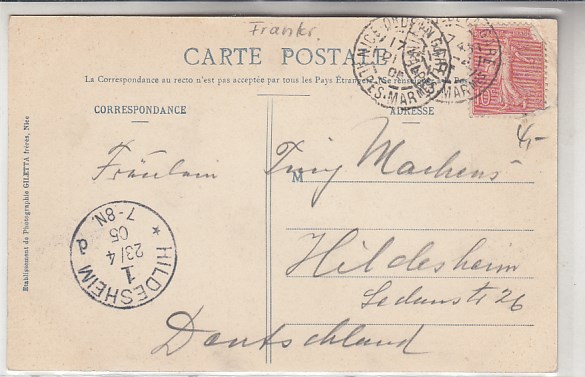 Frankr.
CARTE POSTALE
La Correspondance au recto n'est pas acceptée par tous les Pays Étrangers. (Se renseigner à la Poste)
CORRESPONDANCE
ADRESSE
4,-
Fräulein Tiny Machens
M
Hildesheim
Sedanstr 26
Deutschland
HILDESHEIM
1
23/4
05
7-8N.
Etablissement de Photographie GILETTA frères, Nice